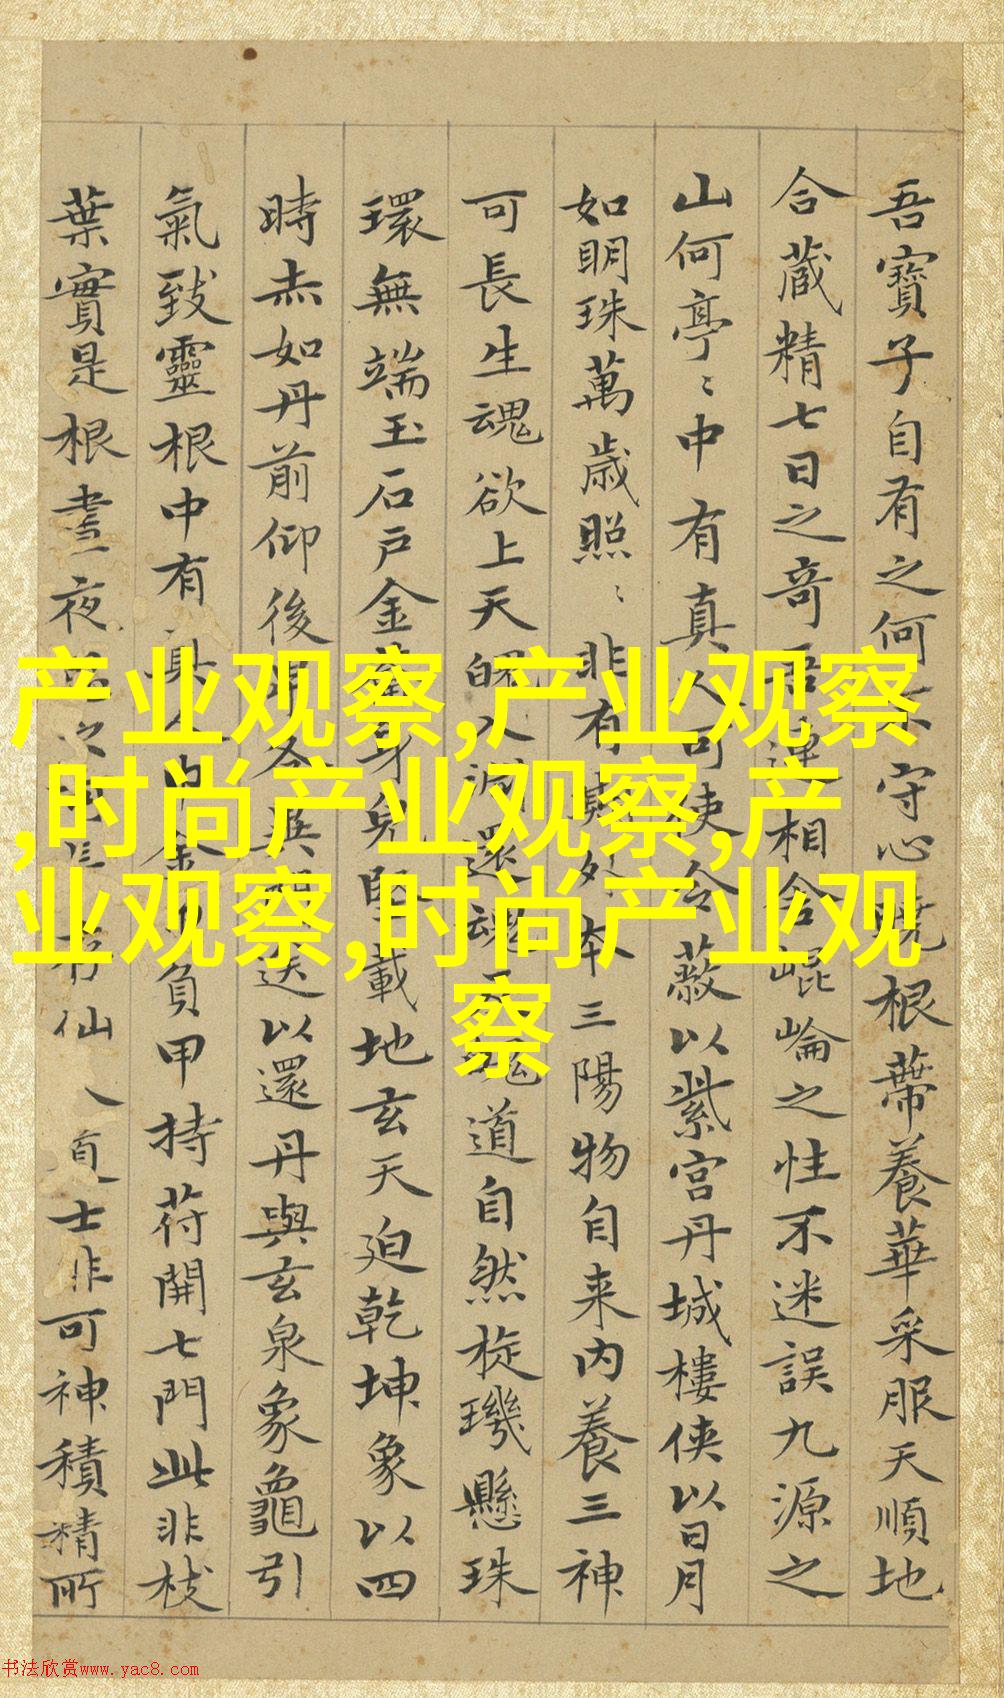 吾寶子自有之何不守心曉根蔕養華采服天順地
合蔵精七日之奇吾連相合崐崘之性不迷誤九源之
山何亭〻中有真人可使令蔽以紫宫丹城樓侠以日月
如明珠萬歳照〻非有期外本三陽物自来内養三神
可長生魂欲上天魄入淵還魂反魄道自然旋璣懸珠
環無端玉石戶金籥身兒堅載地玄天迫乾坤象以四
時赤如丹前仰後卑各異門送以還丹與玄泉象龜引
氣致靈根中有真人巾金巾負甲持苻開七門此非枝
葉實是根晝夜
仙
士非可神積精所
产业观察,产业观察
,时尚产业观察,产
业观察,时尚产业观
察
书法欣赏www.yac8.com